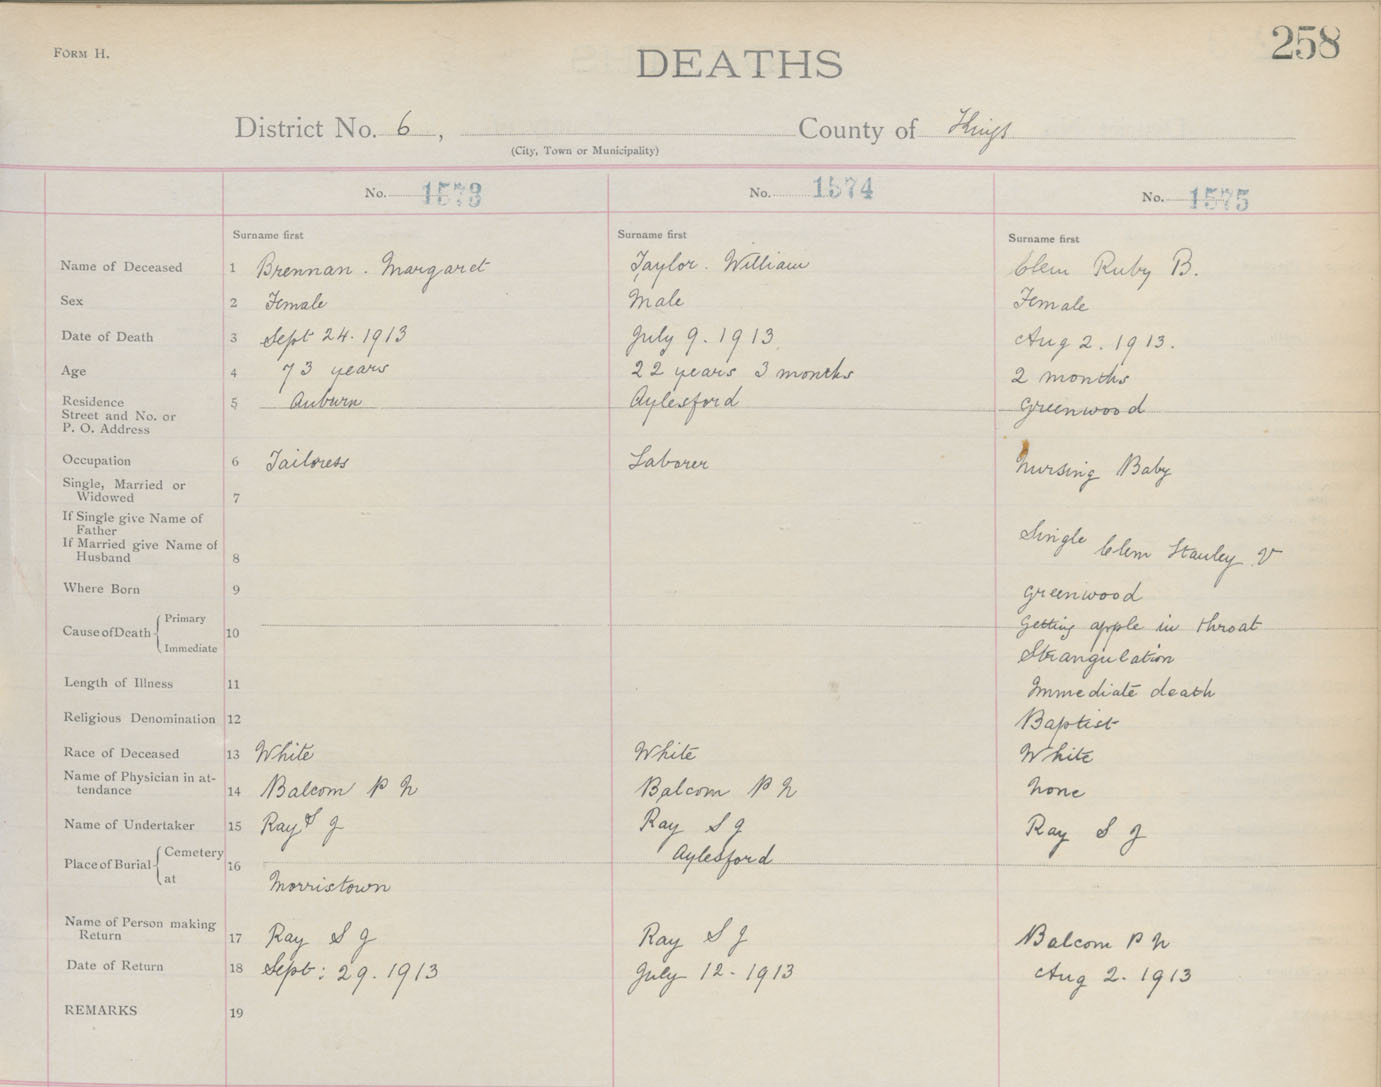 Form H.
DEATHS
258
District No. 6, County of Kings
(City, Town or Municipality)
No. 1573 No. 1574 No. 1575
Surname first Surname first Surname first
Name of Deceased 1 Brennan. Margaret Taylor. William Clem Ruby B.
Sex 2 Female Male Female
Date of Death 3 Sept 24. 1913 July 9. 1913 Aug 2. 1913.
Age 4 73 years 22 years 3 months 2 months
Residence 5 Auburn Aylesford Greenwood
Street and No. or
P. O. Address
Occupation 6 Tailoress Laborer Nursing Baby
Single, Married or
Widowed 7
If Single give Name of
Father Single
If Married give Name of
Husband 8 Clem Stanley V
Where Born 9 Greenwood
Cause of Death Primary 10 Getting apple in throat
Immediate Strangulation
Length of Illness 11 Immediate death
Religious Denomination 12 Baptist
Race of Deceased 13 White White White
Name of Physician in at-
tendance 14 Balcom P N Balcom P N None
Name of Undertaker 15 Ray S J Ray S J Ray S J
Place of Burial Cemetery 16 Aylesford
at Morristown
Name of Person making
Return 17 Ray S J Ray S J Balcom P N
Date of Return 18 Sept: 29. 1913 July 12 - 1913 Aug 2. 1913
REMARKS 19